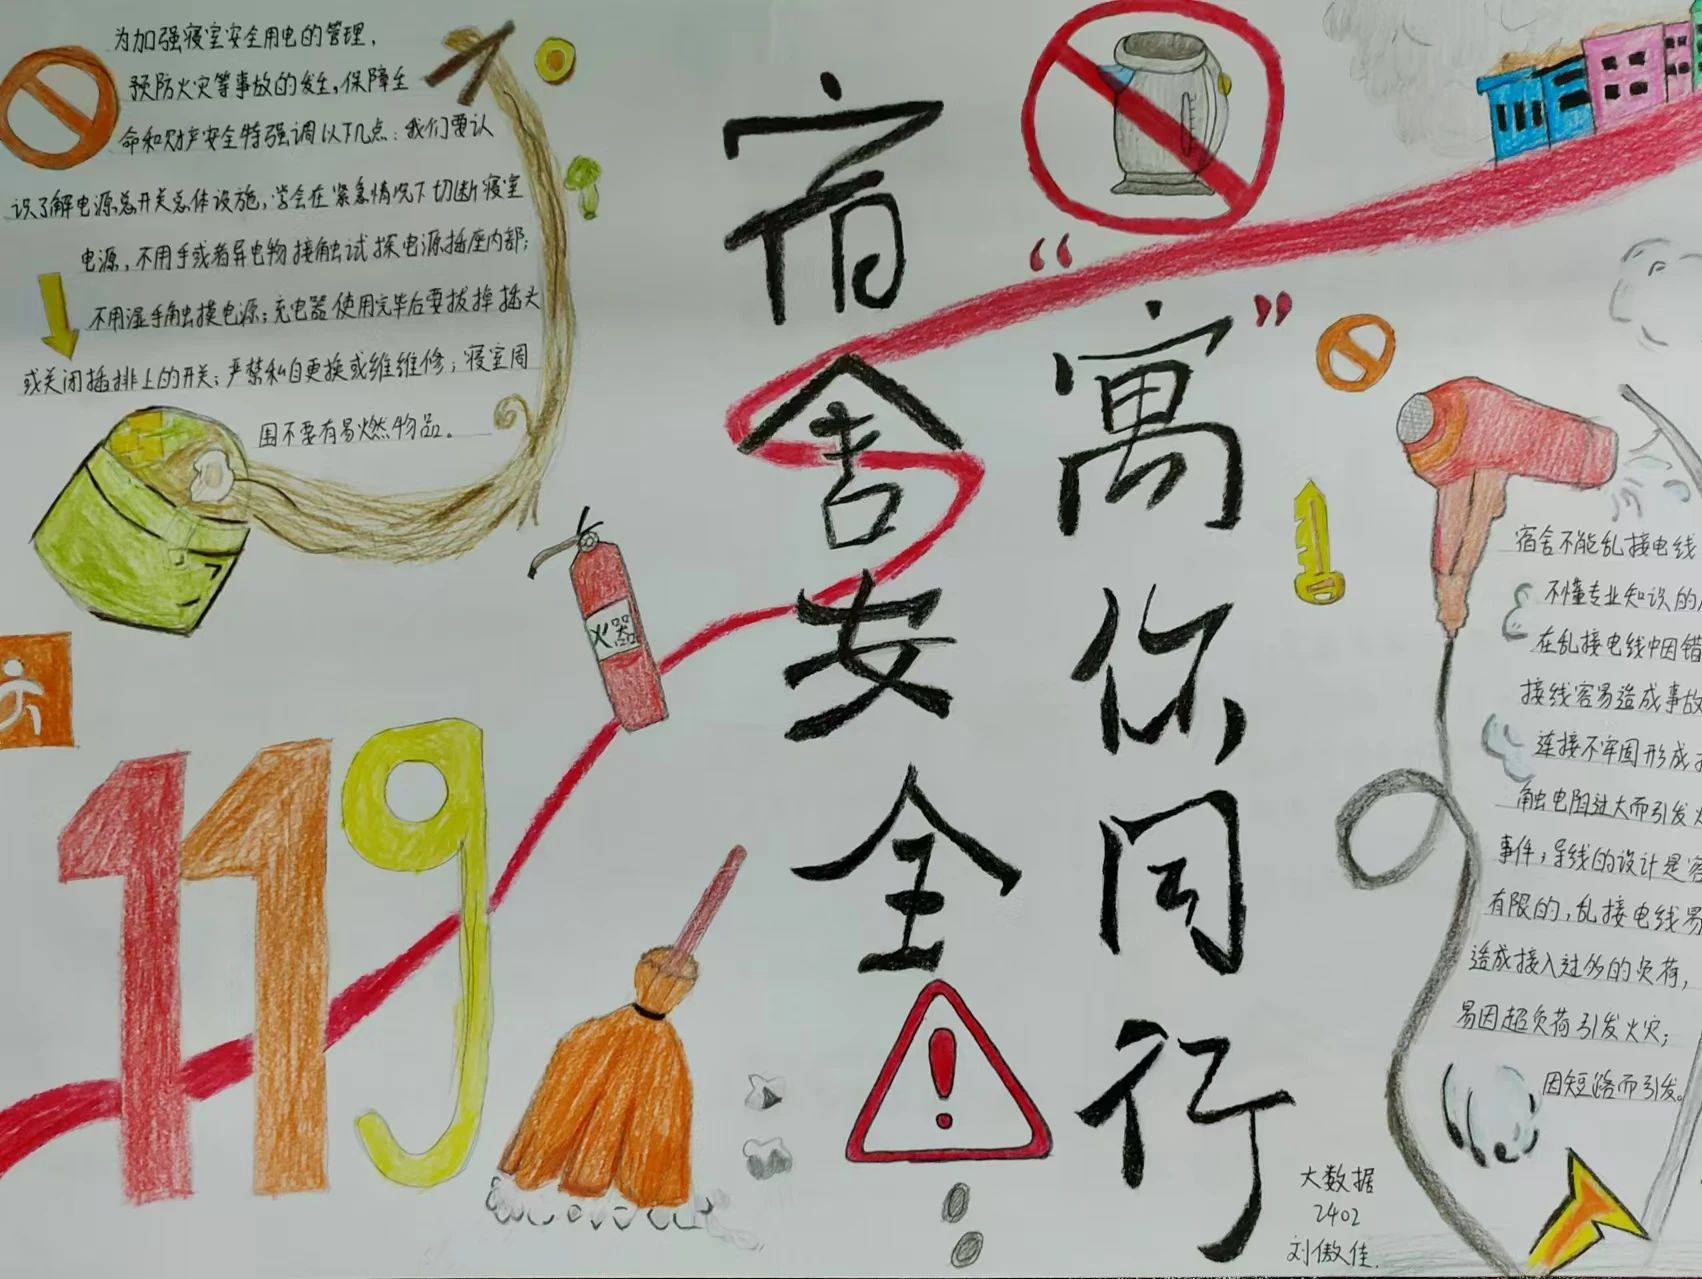 为加强寝室安全用电的管理，
预防火灾等事故的发生，保障生
命和财产安全特强调以下几点：我们要认
识了解电源总开关总体设施，学会在紧急情况下切断寝室
电源，不用手或者导电物接触试探电源插座内部；
不用湿手触摸电源；充电器使用完毕后要拔掉插头
或关闭插排上的开关；严禁私自更换或维维修；寝室周
围不要有易燃物品。
宿舍安全
“寓”你同行
火器
119
宿舍不能乱接电线
不懂专业知识的
在乱接电线中因错
接线容易造成事故
连接不牢固形成
触电阻过大而引发
事件；导线的设计是
有限的，乱接电线易
造成接入过多的负荷，
易因超负荷引发火灾；
因短路而引发。
大数据
2402
刘傲佳.